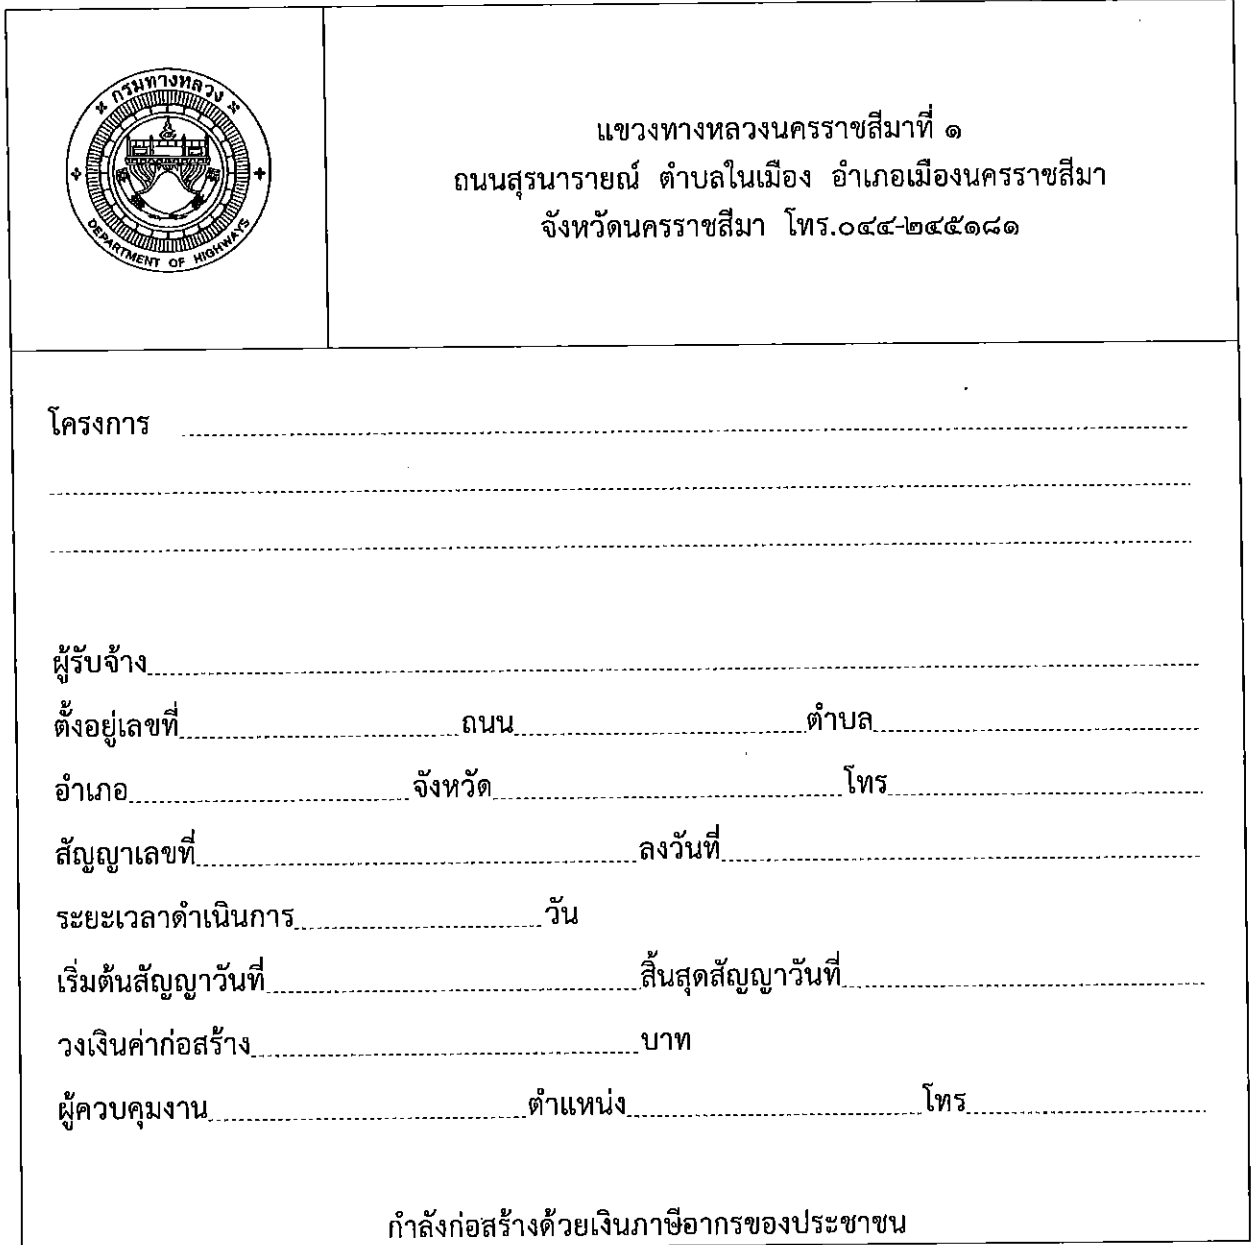 กรมทางหลวง
DEPARTMENT OF HIGHWAYS
แขวงทางหลวงนครราชสีมาที่ ๑
ถนนสุรนารายณ์ ตำบลในเมือง อำเภอเมืองนครราชสีมา
จังหวัดนครราชสีมา โทร.๐๔๔-๒๔๕๑๘๑
โครงการ
ผู้รับจ้าง
ตั้งอยู่เลขที่ ถนน ตำบล
อำเภอ จังหวัด โทร
สัญญาเลขที่ ลงวันที่
ระยะเวลาดำเนินการ วัน
เริ่มต้นสัญญาวันที่ สิ้นสุดสัญญาวันที่
วงเงินค่าก่อสร้าง บาท
ผู้ควบคุมงาน ตำแหน่ง โทร
กำลังก่อสร้างด้วยเงินภาษีอากรของประชาชน